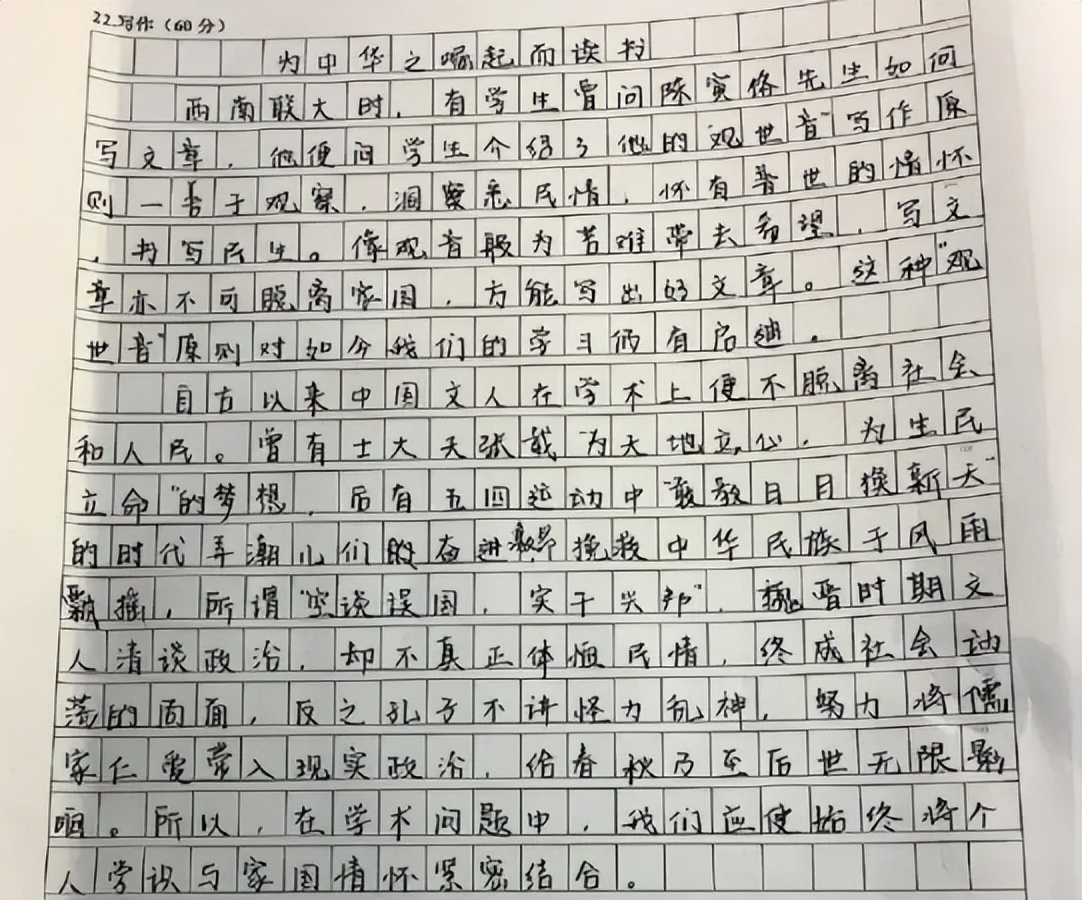 22.写作（60分）
为中华之崛起而读书
西南联大时，有学生曾问陈寅恪先生如何
写文章，他便向学生介绍了他的观世音"写作原
则一善于观察，洞察悉民情，怀有普世的情怀
，书写民生。像观音般为苦难带去希望，写文
章亦不可脱离家国，方能写出好文章。这种"观
世音"原则对如今我们的学习仍有启迪。
自古以来中国文人在学术上便不脱离社会
和人民。曾有士大夫张载"为天地立心，为生民
立命"的梦想，后有五四运动中"敢教日月换新天"
的时代弄潮儿们的奋进挽救中华民族于风雨
飘摇，所谓"空谈误国，实干兴邦"，魏晋时期文
人清谈政治，却不真正体恤民情，终成社会动
荡的局面，反之孔子不讲怪力乱神，努力将儒
家仁爱带入现实政治，给春秋乃至后世无限影
响。所以，在学术问题中，我们应使始终将个
人学识与家国情怀紧密结合。